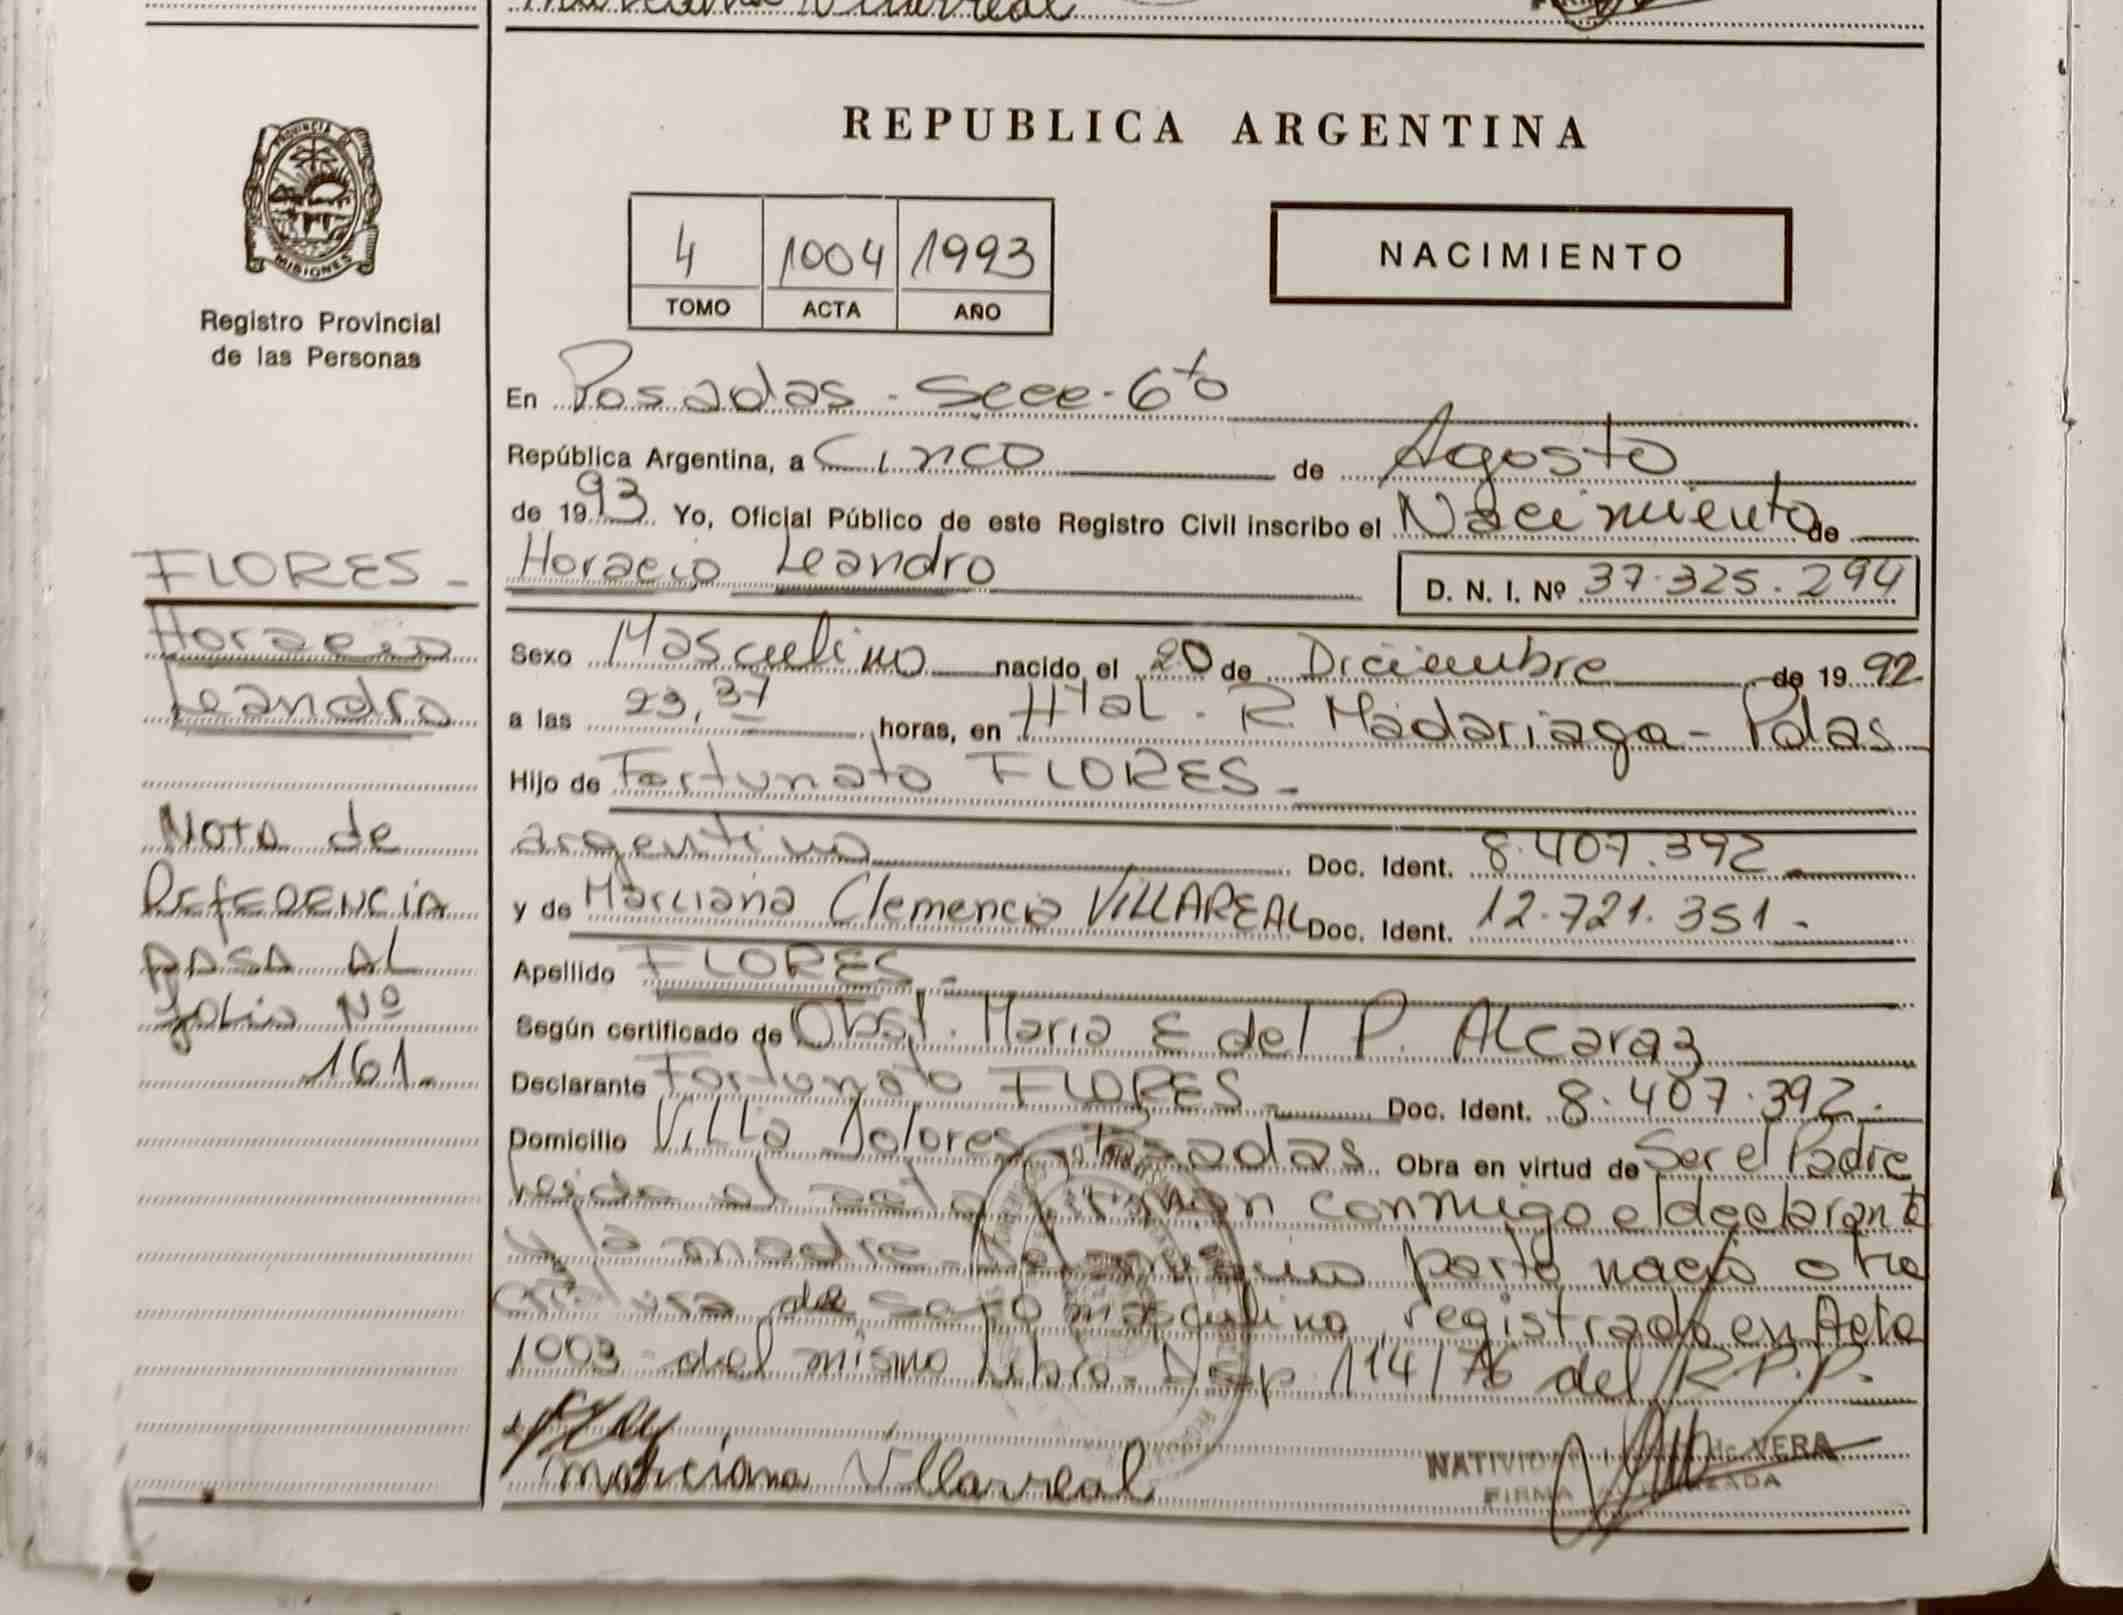 Villarreal
PROVINCIA
MISIONES
Registro Provincial
de las Personas
REPUBLICA ARGENTINA
4 1004 1993
TOMO ACTA AÑO
NACIMIENTO
En Posadas - Secc - 6to
República Argentina, a Cinco de Agosto
de 1993 Yo, Oficial Público de este Registro Civil inscribo el Nacimiento de
Horacio Leandro D. N. I. Nº 37.325.294
Sexo Masculino nacido el 20 de Diciembre de 1992
a las 23,37 horas, en Htal. R. Madariaga - Pdas
Hijo de Fortunato FLORES -
argentino Doc. Ident. 8.407.392
y de Marciana Clemencia VILLAREAL Doc. Ident. 12.721.351 -
Apellido FLORES -
Según certificado de Obst. Maria E del P. Alcaraz
Declarante Fortunato FLORES Doc. Ident. 8.407.392.
Domicilio Villa Dolores Posadas Obra en virtud de Ser el Padre
Leida el acta firman conmigo el declarante
y la madre - Del mismo parto nació otra
criatura de sexo masculino, registrado en Acta
1003 del mismo Libro - Disp 114/76 del R.P.P.
Marciana Villarreal
de VERA
FIRMA AUTORIZADA
FLORES -
Horacio
Leandro
Nota de
Referencia
PASA AL
folio Nº
161.